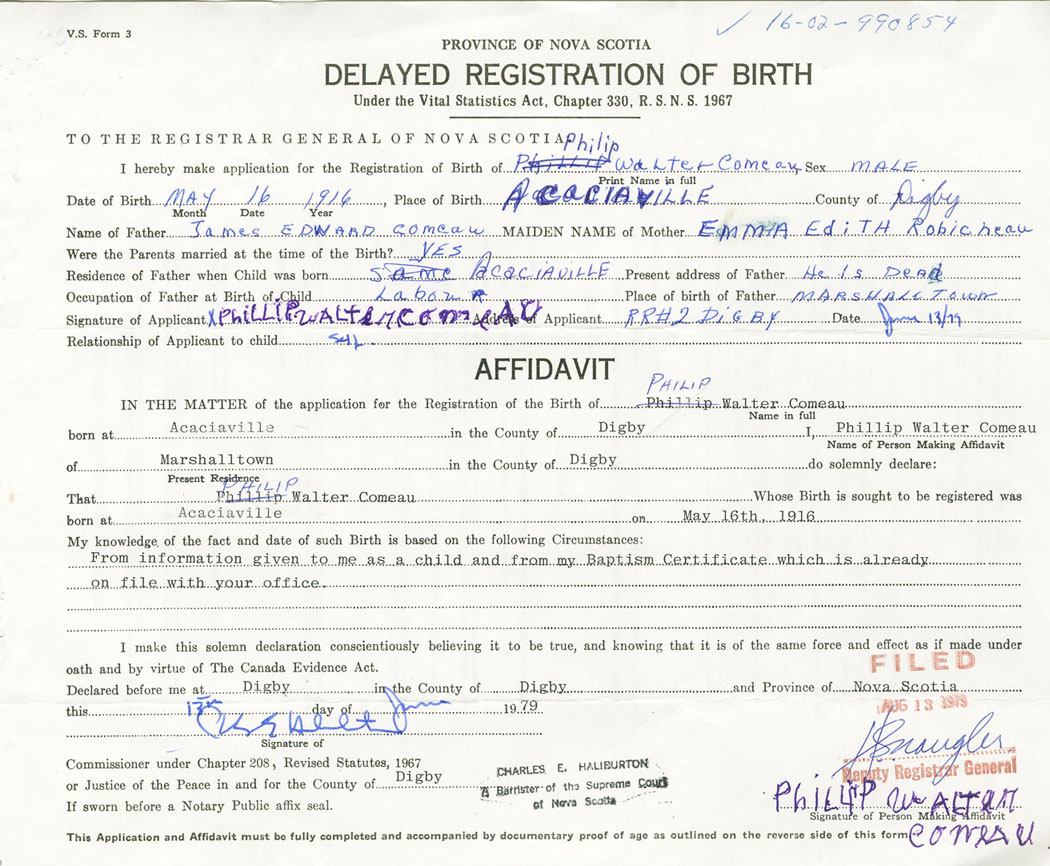 V.S. Form 3
✓ 16-02-990854
PROVINCE OF NOVA SCOTIA
DELAYED REGISTRATION OF BIRTH
Under the Vital Statistics Act, Chapter 330, R. S. N. S. 1967
TO THE REGISTRAR GENERAL OF NOVA SCOTIA
Philip
I hereby make application for the Registration of Birth of Phillip Walter Comeau Sex MALE
Print Name in full
Date of Birth MAY 16 1916, Place of Birth ACACIAVILLE County of Digby
Month Date Year
Name of Father James EDWARD Comeau MAIDEN NAME of Mother EMMA EdiTH Robicheau
Were the Parents married at the time of the Birth? YES
Residence of Father when Child was born Same ACACIAVILLE Present address of Father He Is Dead
Occupation of Father at Birth of Child Labour Place of birth of Father MARSHALLTOWN
Signature of Applicant X PHILLIP WALTER COMEAU Address of Applicant RR#2 DIGBY Date June 13/79
Relationship of Applicant to child self
AFFIDAVIT
PHILIP
IN THE MATTER of the application for the Registration of the Birth of Phillip Walter Comeau
Name in full
born at Acaciaville in the County of Digby I, Phillip Walter Comeau
Name of Person Making Affidavit
of Marshalltown in the County of Digby do solemnly declare:
Present Residence
PHILIP
That Phillip Walter Comeau Whose Birth is sought to be registered was
born at Acaciaville on May 16th, 1916
My knowledge of the fact and date of such Birth is based on the following Circumstances:
From information given to me as a child and from my Baptism Certificate which is already
on file with your office.
I make this solemn declaration conscientiously believing it to be true, and knowing that it is of the same force and effect as if made under
oath and by virtue of The Canada Evidence Act.
FILED
Declared before me at Digby in the County of Digby and Province of Nova Scotia
this 13th day of June 1979
AUG 13 1979
Signature of
Commissioner under Chapter 208, Revised Statutes, 1967
or Justice of the Peace in and for the County of Digby
If sworn before a Notary Public affix seal.
CHARLES E. HALIBURTON
A Barrister of the Supreme Court
of Nova Scotia
Deputy Registrar General
PHILLIP WALTER
Signature of Person Making Affidavit
COMEAU
This Application and Affidavit must be fully completed and accompanied by documentary proof of age as outlined on the reverse side of this form